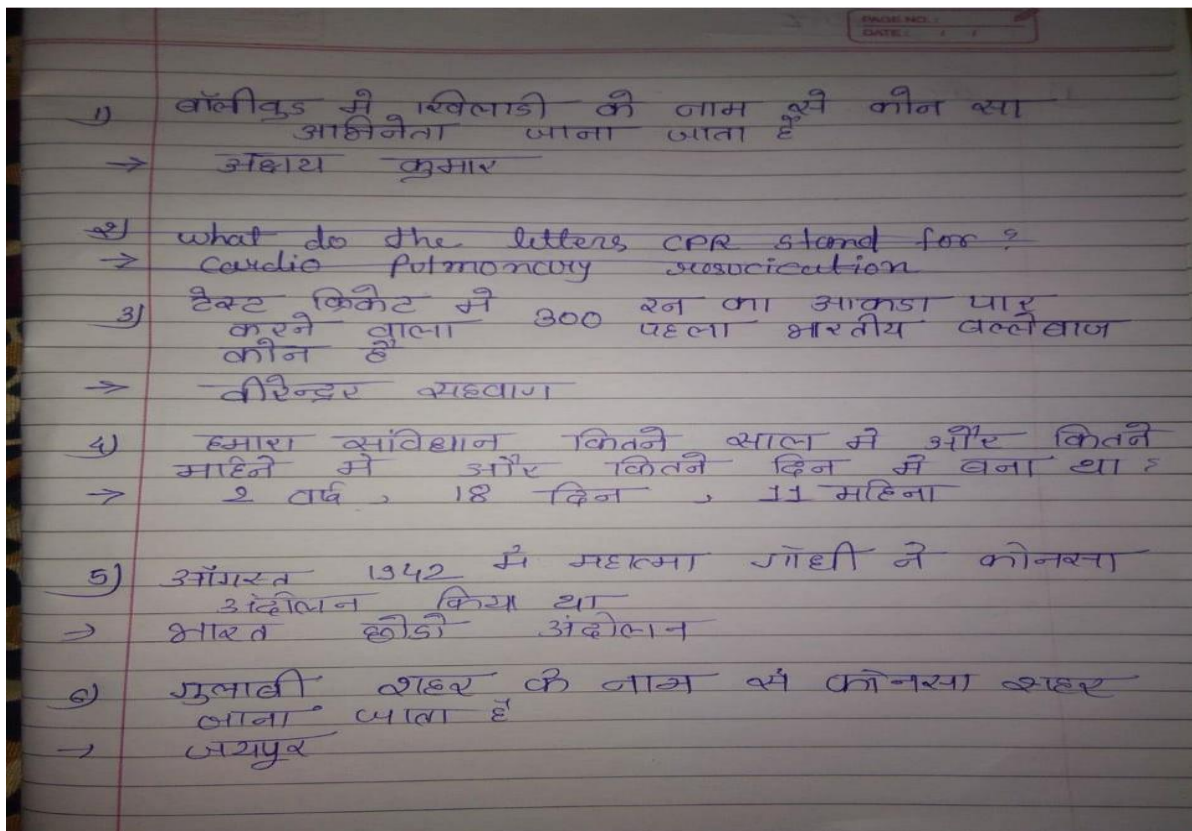 PAGE NO.:
DATE: / /
1) बॉलीवुड मे खिलाडी के नाम से कौन सा
अभिनेता जाना जाता है
→ अक्षय कुमार
2) what do the letters CPR stand for ?
→ Cardio Pulmonary
3) टेस्ट क्रिकेट मे 300 रन का आकडा पार
करने वाला पहला भारतीय बल्लेबाज
कौन है
→ वीरेन्द्र सहवाग
4) हमारा संविधान कितने साल मे और कितने
माहिने मे और कितने दिन मे बना था ?
→ 2 वर्ष , 18 दिन , 11 महिना
5) ऑगस्त 1942 मे महात्मा गाँधी ने कोनसा
अंदोलन किया था
→ भारत छोडो अंदोलन
6) गुलाबी शहर के नाम से कोनसा शहर
जाना जाता है
→ जयपुर